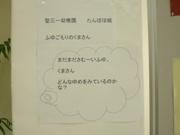 聖三一幼稚園　たんぽぽ組
ふゆごもりのくまさん
まだまださむーいふゆ。
くまさん
どんなゆめをみているのか
な？